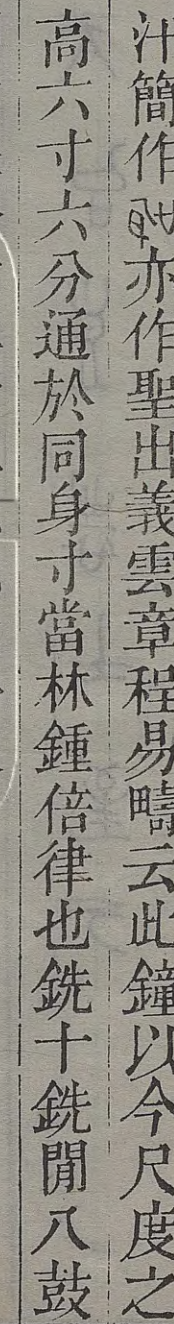 汗簡作亦作聖出義雲章程易疇云此鐘以今尺度之
高六寸六分通於同身寸當林鍾倍律也銑十銑閒八鼓